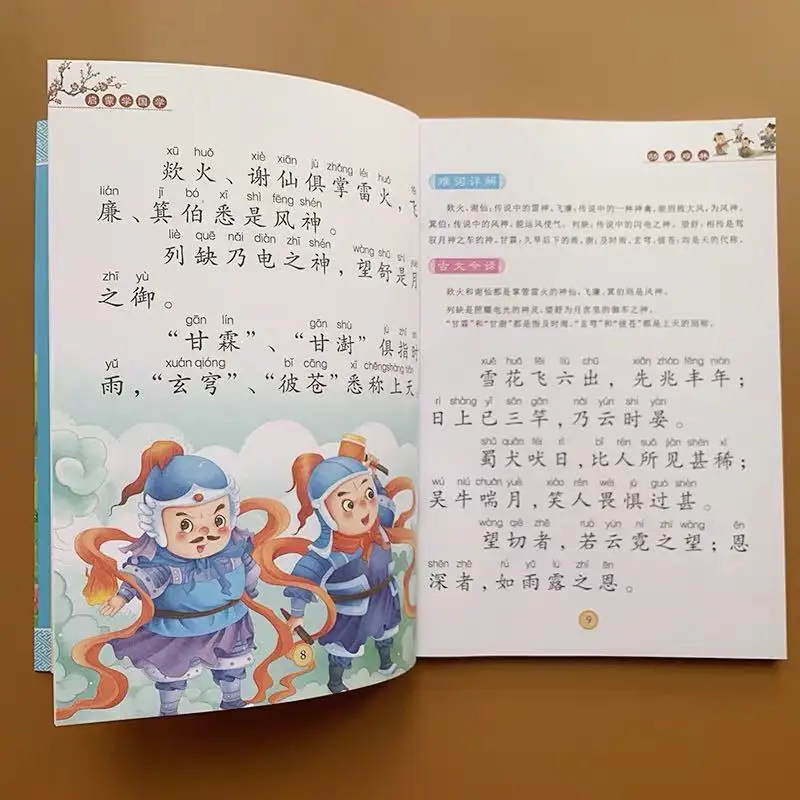 启蒙学国学
xū huǒ xiè xiān jù zhǎng léi huǒ fē
欻火、谢仙俱掌雷火，飞
lián jī bó xī shì fēng shén
廉、箕伯悉是风神。
liè quē nǎi diàn zhī shén wàng shū shì
列缺乃电之神，望舒是月
zhī yù
之御。
gān lín gān shù jù zhǐ shí
“甘霖”、“甘澍”俱指时
yǔ xuán qióng bǐ cāng xī chēng shàng tiān
雨，“玄穹”、“彼苍”悉称上天。
8
幼学琼林
难词详解
欻火、谢仙：传说中的雷神。飞廉：传说中的一种神禽，能招致大风，为风神。
箕伯：传说中的风神，能运风使气。列缺：传说中的闪电之神。望舒：相传是驾
驭月神之车的神。甘霖：久旱后下的雨。澍：及时雨。玄穹、彼苍：均是天的代称。
古文今译
欻火和谢仙都是掌管雷火的神仙，飞廉、箕伯则是风神。
列缺是照耀电光的神灵，望舒为月宫里的御车之神。
“甘霖”和“甘澍”都是指及时雨，“玄穹”和“彼苍”都是上天的别称。
xuě huā fēi liù chū xiān zhào fēng nián
雪花飞六出，先兆丰年；
rì shàng yǐ sān gān nǎi yún shí yàn
日上已三竿，乃云时晏。
shǔ quǎn fèi rì bǐ rén suǒ jiàn shèn xī
蜀犬吠日，比人所见甚稀；
wú niú chuǎn yuè xiào rén wèi jù guò shèn
吴牛喘月，笑人畏惧过甚。
wàng qiè zhě ruò yún ní zhī wàng ēn
望切者，若云霓之望；恩
shēn zhě rú yǔ lù zhī ēn
深者，如雨露之恩。
9